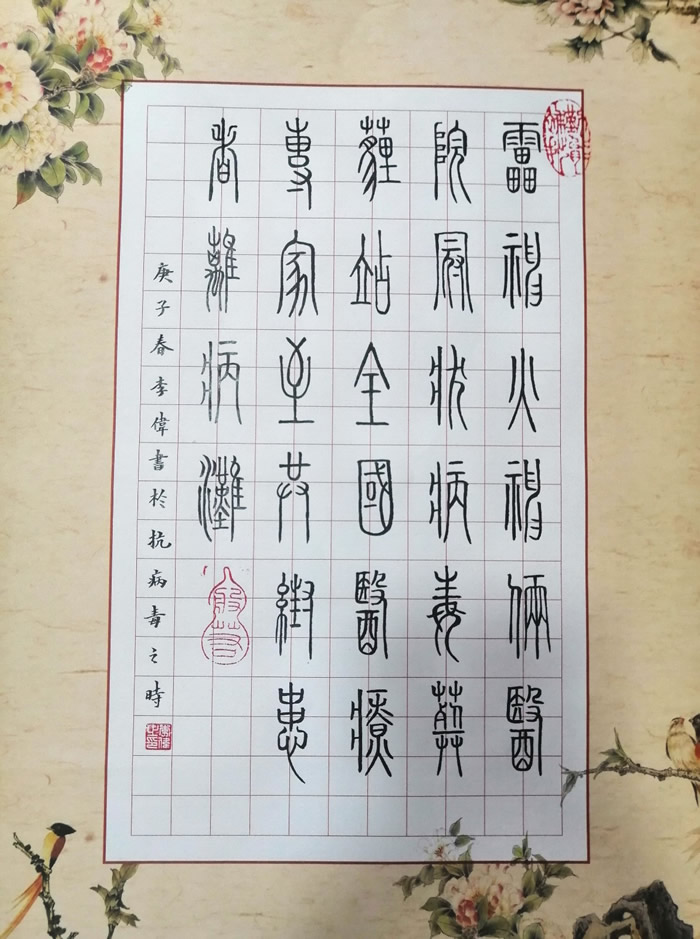 雷神火神倆醫
院冠狀病毒葬
薶站全國醫療
專家至共患
者離病灘
庚子春李偉書於抗病毒之時